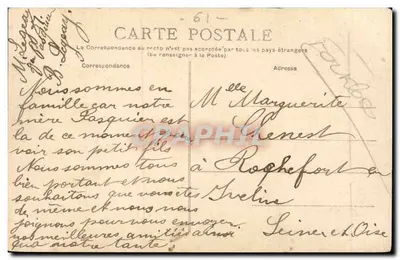 61
CARTE POSTALE
La Correspondance au recto n'est pas acceptée par tous les pays étrangers
(Se renseigner à la Poste)
Correspondance
Adresse
Nous sommes en
famille car notre
mère Pasquier est
là de ce moment pour
voir son petit fils
Nous sommes tous
bien portant et nous
souhaitons que vous êtes
de même et nous nous
joignons pour nous envoyer
nos meilleures amitiés ainsi
qua notre tante
Melle Marguerite
Chenest
à Rochefort en
Yvelin
Seine et Oise